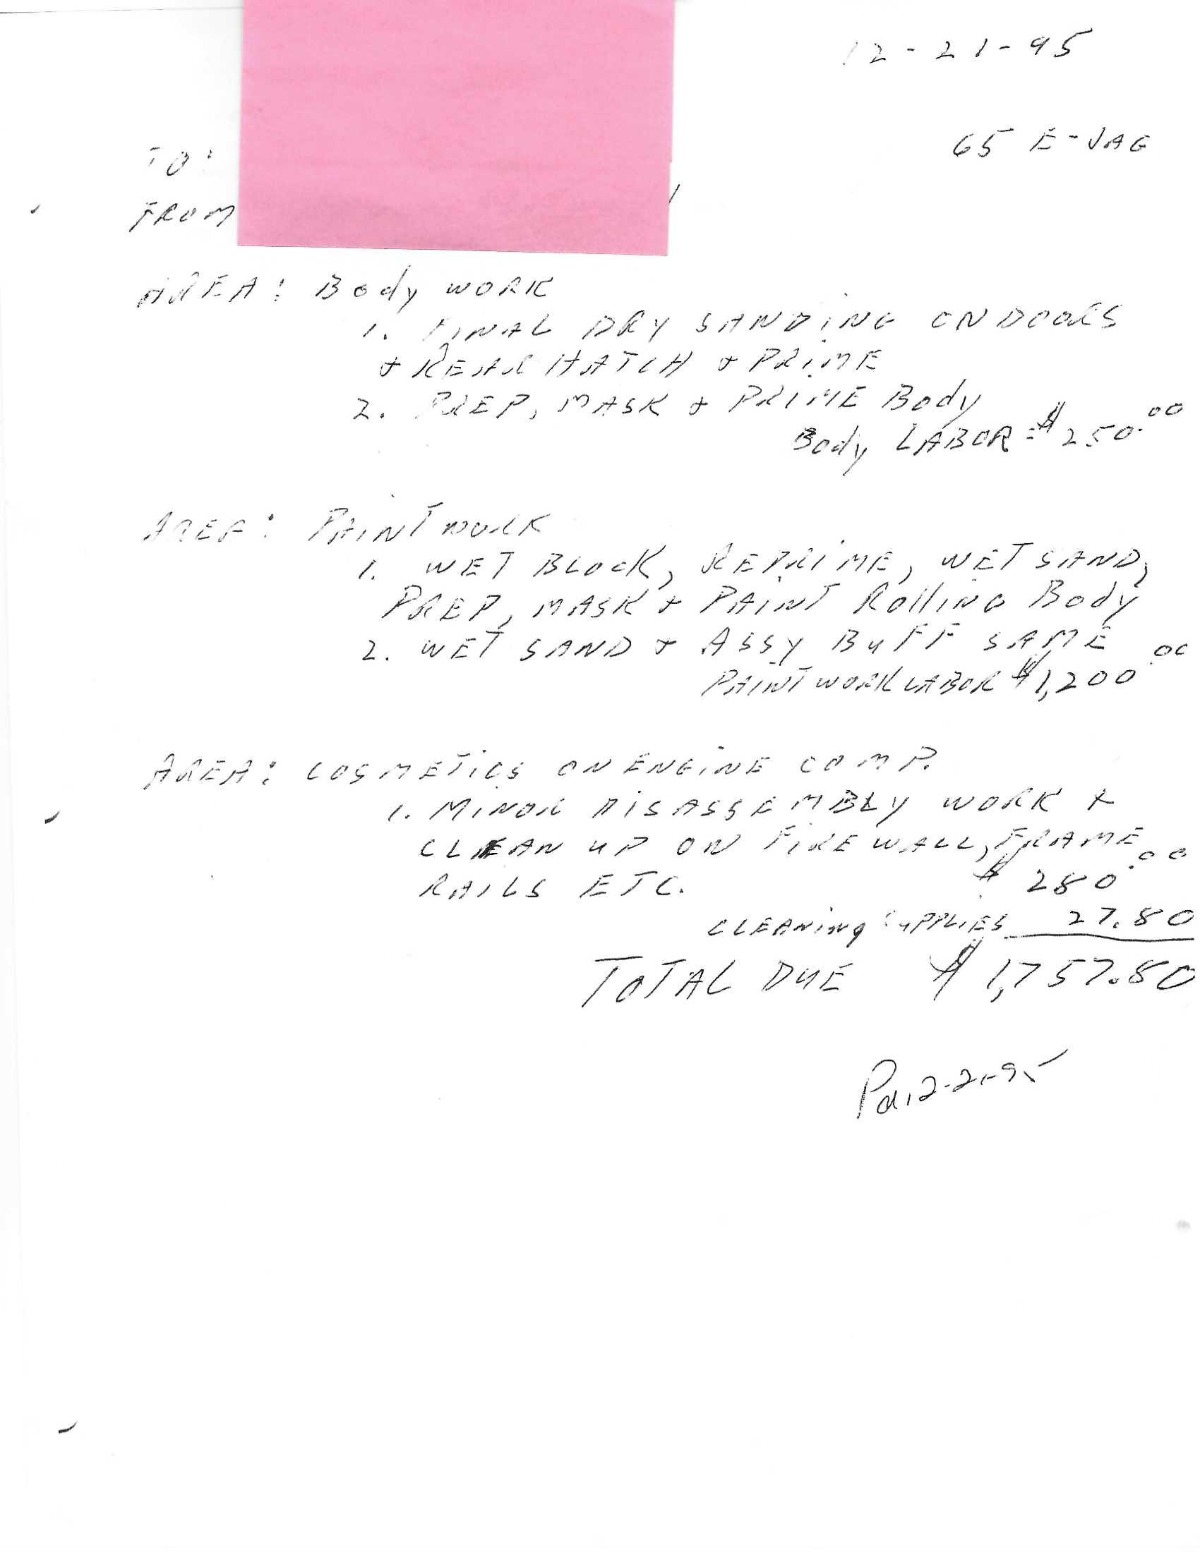 12-21-95
65 E-JAG
TO:
FROM
AREA: Body WORK
1. FINAL DRY SANDING ON DOORS
+ REAR HATCH + PRIME
2. PREP, MASK + PRIME Body
Body LABOR = $250.00
AREA: PAINTWORK
1. WET BLOCK, REPRIME, WET SAND,
PREP, MASK + PAINT Rolling Body
2. WET SAND + ASSY BUFF SAME
PAINTWORK LABOR $1,200 00
AREA: COSMETICS ON ENGINE COMP.
1. MINOR DISASSEMBLY WORK +
CLEAN UP ON FIREWALL, FRAME
RAILS ETC. $ 280.00
CLEANING SUPPLIES 27.80
TOTAL DUE $1,757.80
Pd. 12-21-95